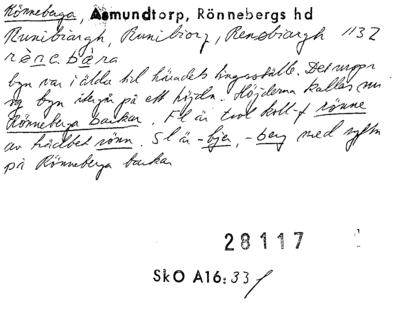 Rönneberga, Asmundtorp, Rönnebergs hd
Runibiargh, Runibiorg, Rensbiargh 1132
rènebàra
byn var i äldre tid häradets tingsställe. Det
byn på ett höjdn. Höjderna kallas nu
Rönneberga backar. Fl är coll. f rönne
av trädbet rönn. Sl är -bjer, -berg med syftn
på Rönneberga backar
28117
SkO A16:33f